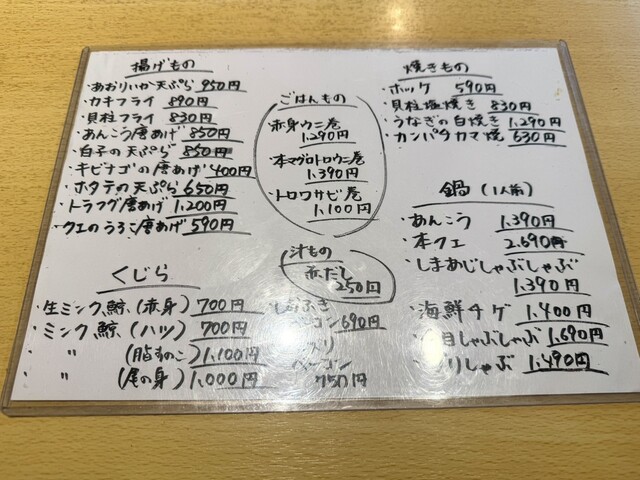 揚げもの
・あおりいか天ぷら 950円
・カキフライ 890円
・貝柱フライ 830円
・あんこう唐あげ 850円
・白子の天ぷら 850円
・キビナゴの唐あげ 400円
・ホタテの天ぷら 650円
・トラフグ唐あげ 1,200円
・クエのうろこ唐あげ 590円
ごはんもの
・赤身ウニ巻
1,290円
・本マグロトロウニ巻
1,390円
・トロワサビ巻
1,100円
焼きもの
・ホッケ 590円
・貝柱塩焼き 830円
・うなぎの白焼き 1,290円
・カンパチカマ焼 630円
鍋 (1人前)
・あんこう 1,390円
・本クエ 2,690円
・しまあじしゃぶしゃぶ
1,390円
・海鮮チゲ 1,400円
目しゃぶしゃぶ 1,690円
りしゃぶ 1,490円
汁もの
赤だし
250円
くじら
・生ミンク鯨(赤身) 700円
・ミンク鯨(ハツ) 700円
・〃 1,100円
・〃 (尾の身) 1,000円
690円
750円